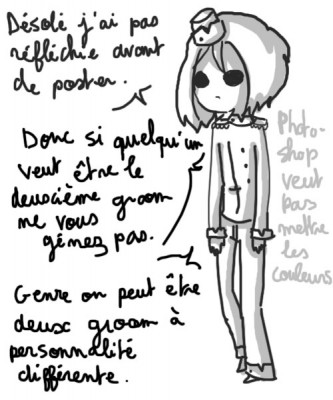 Désolé j'ai pas
réfléchie avant
de poster.
Donc si quelqu'un
veut être le
deuxième groom
ne vous
gênez pas.
Genre on peut être
deux groom à
personnalité
différente.
Photo-
shop
veut
pas
mettre
les
couleurs